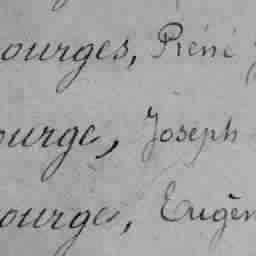 ourges, René
ourge, Joseph
ourges, Eugèn